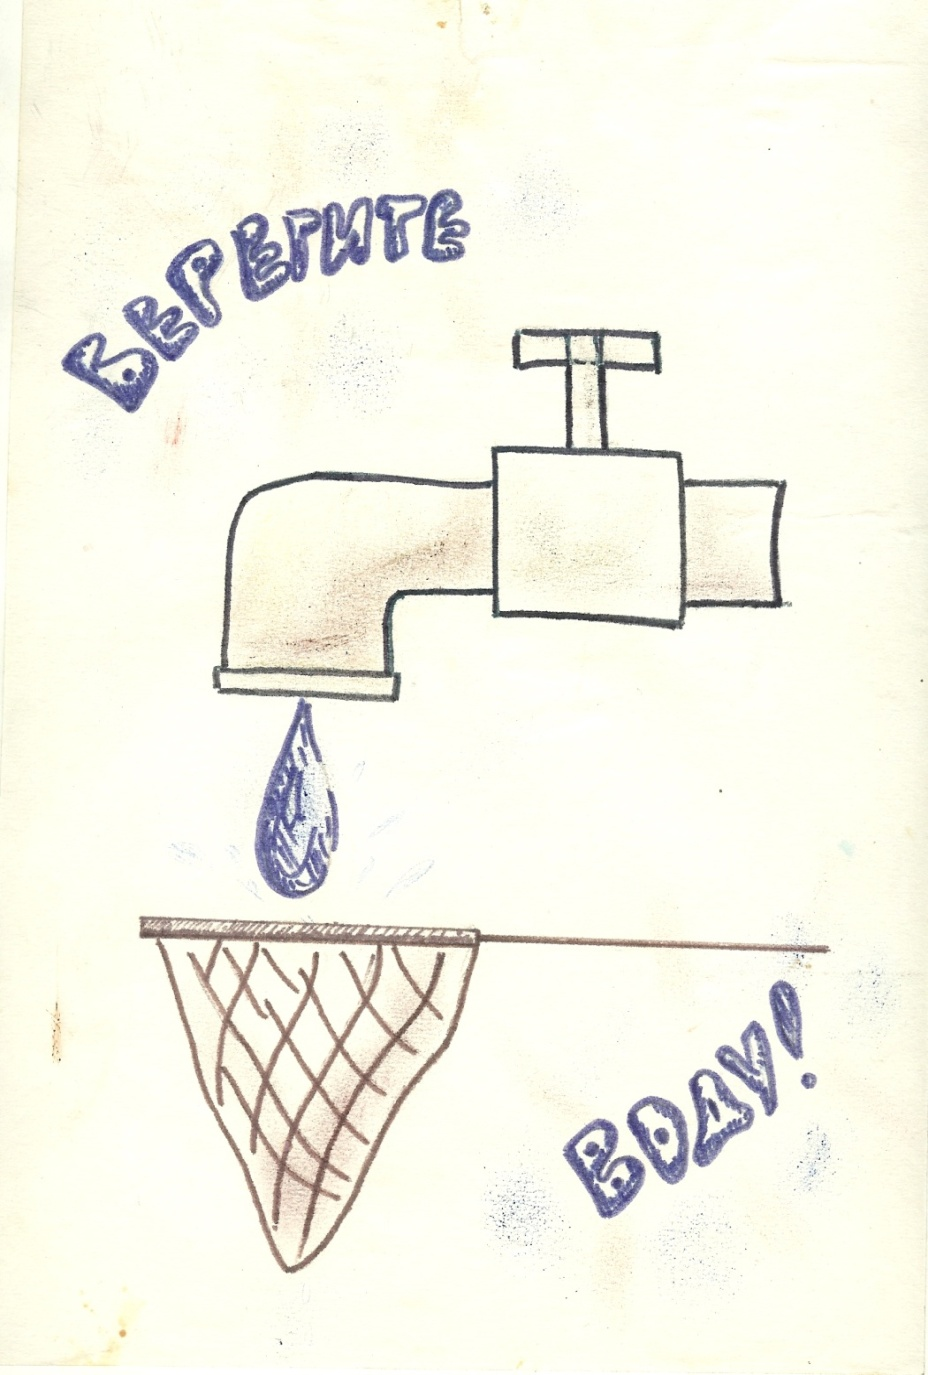 БЕРЕГИТЕ
ВОДУ!